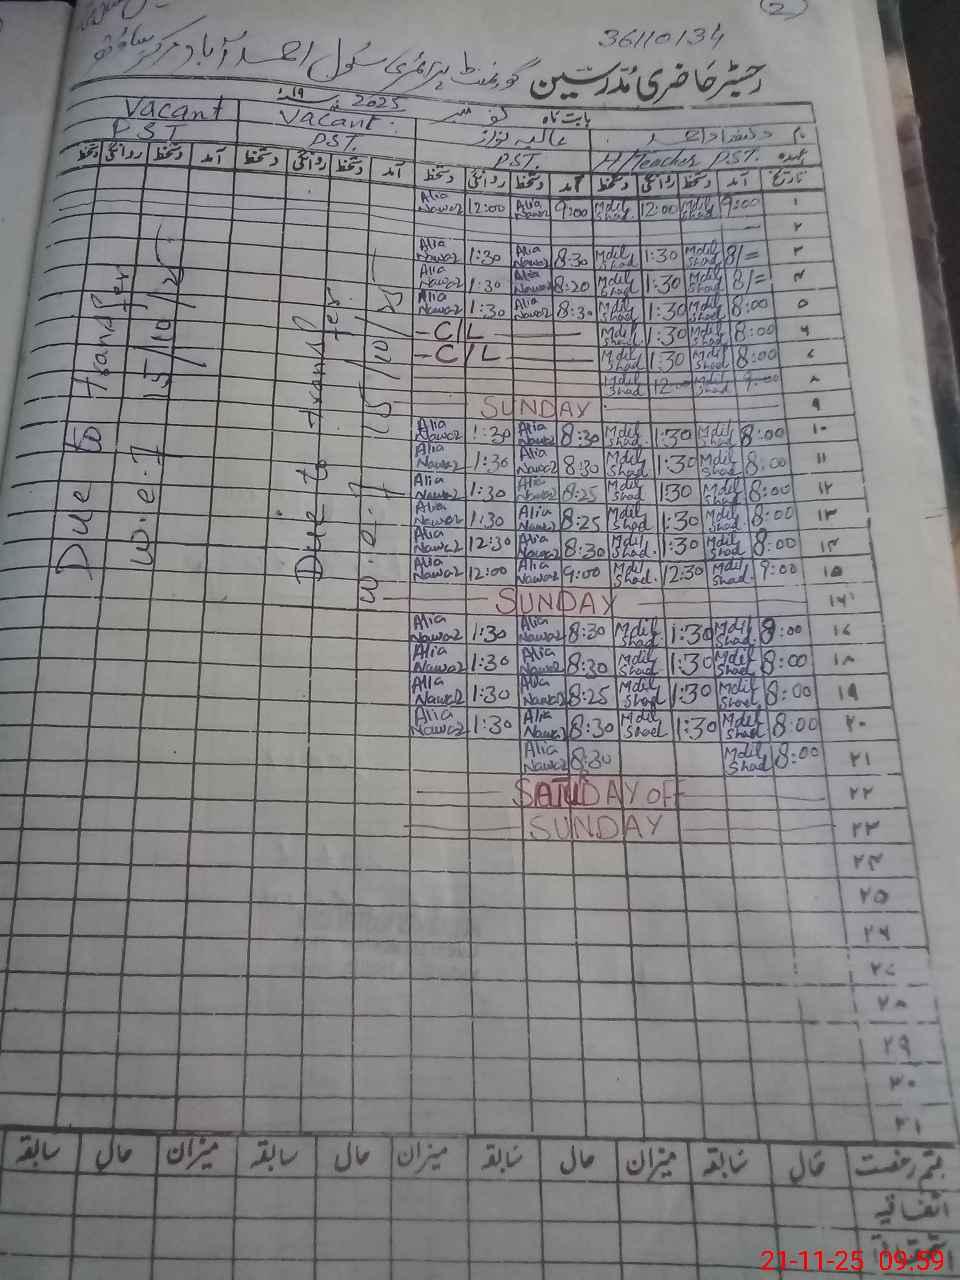 2
36110134
رجسٹر حاضری مدرسین گورنمنٹ پرائمری سکول احمد آباد مرکز
بابت ماہ نومبر 2025
نام عالیہ نواز Vacant Vacant
عہدہ H/Teacher PST. PST. PST. PST
تاریخ آمد دستخط روانگی دستخط آمد دستخط روانگی دستخط آمد دستخط روانگی دستخط آمد دستخط روانگی دستخط
۱ 9:00 Mdil Shad 12:00 Mdil Shad 9:00 Alia Nawaz 12:00 Alia Nawaz
۲ —
۳ 8/= Mdil Shad 1:30 Mdil Shad 8:30 Alia Nawaz 1:30 Alia Nawaz
۴ 8/= Mdil Shad 1:30 Mdil Shad 8:20 Alia Nawaz 1:30 Alia Nawaz
۵ 8:00 Mdil Shad 1:30 Mdil Shad 8:30 Alia Nawaz 1:30 Alia Nawaz
۶ 8:00 Mdil Shad 1:30 Mdil Shad — C/L —
۷ 8:00 Mdil Shad 1:30 Mdil Shad — C/L —
۸ 9:00 Mdil Shad 12:00 Mdil Shad
۹ SUNDAY
۱۰ 8:00 Mdil Shad 1:30 Mdil Shad 8:30 Alia Nawaz 1:30 Alia Nawaz
۱۱ 8:00 Mdil Shad 1:30 Mdil Shad 8:30 Alia Nawaz 1:30 Alia Nawaz
۱۲ 8:00 Mdil Shad 1:30 Mdil Shad 8:25 Alia Nawaz 1:30 Alia Nawaz
۱۳ 8:00 Mdil Shad 1:30 Mdil Shad 8:25 Alia Nawaz 1:30 Alia Nawaz
۱۴ 8:00 Mdil Shad 1:30 Mdil Shad 8:30 Alia Nawaz 12:30 Alia Nawaz
۱۵ 9:00 Mdil Shad 12:30 Mdil Shad 9:00 Alia Nawaz 12:00 Alia Nawaz
۱۶ SUNDAY
۱۷ 8:00 Mdil Shad 1:30 Mdil Shad 8:30 Alia Nawaz 1:30 Alia Nawaz
۱۸ 8:00 Mdil Shad 1:30 Mdil Shad 8:30 Alia Nawaz 1:30 Alia Nawaz
۱۹ 8:00 Mdil Shad 1:30 Mdil Shad 8:25 Alia Nawaz 1:30 Alia Nawaz
۲۰ 8:00 Mdil Shad 1:30 Mdil Shad 8:30 Alia Nawaz 1:30 Alia Nawaz
۲۱ 8:00 Mdil Shad 8:30 Alia Nawaz
۲۲ SATUDAY OFF
۲۳ SUNDAY
۲۴
۲۵
۲۶
۲۷
۲۸
۲۹
۳۰
۳۱
Due to transfer
w.e.f 15/10/25
Due to transfer
w.e.f 15/10/25
قسم رخصت حال سابقہ میزان حال سابقہ میزان حال سابقہ میزان حال سابقہ
اتفاقیہ
استحقاقی
21-11-25 09:59